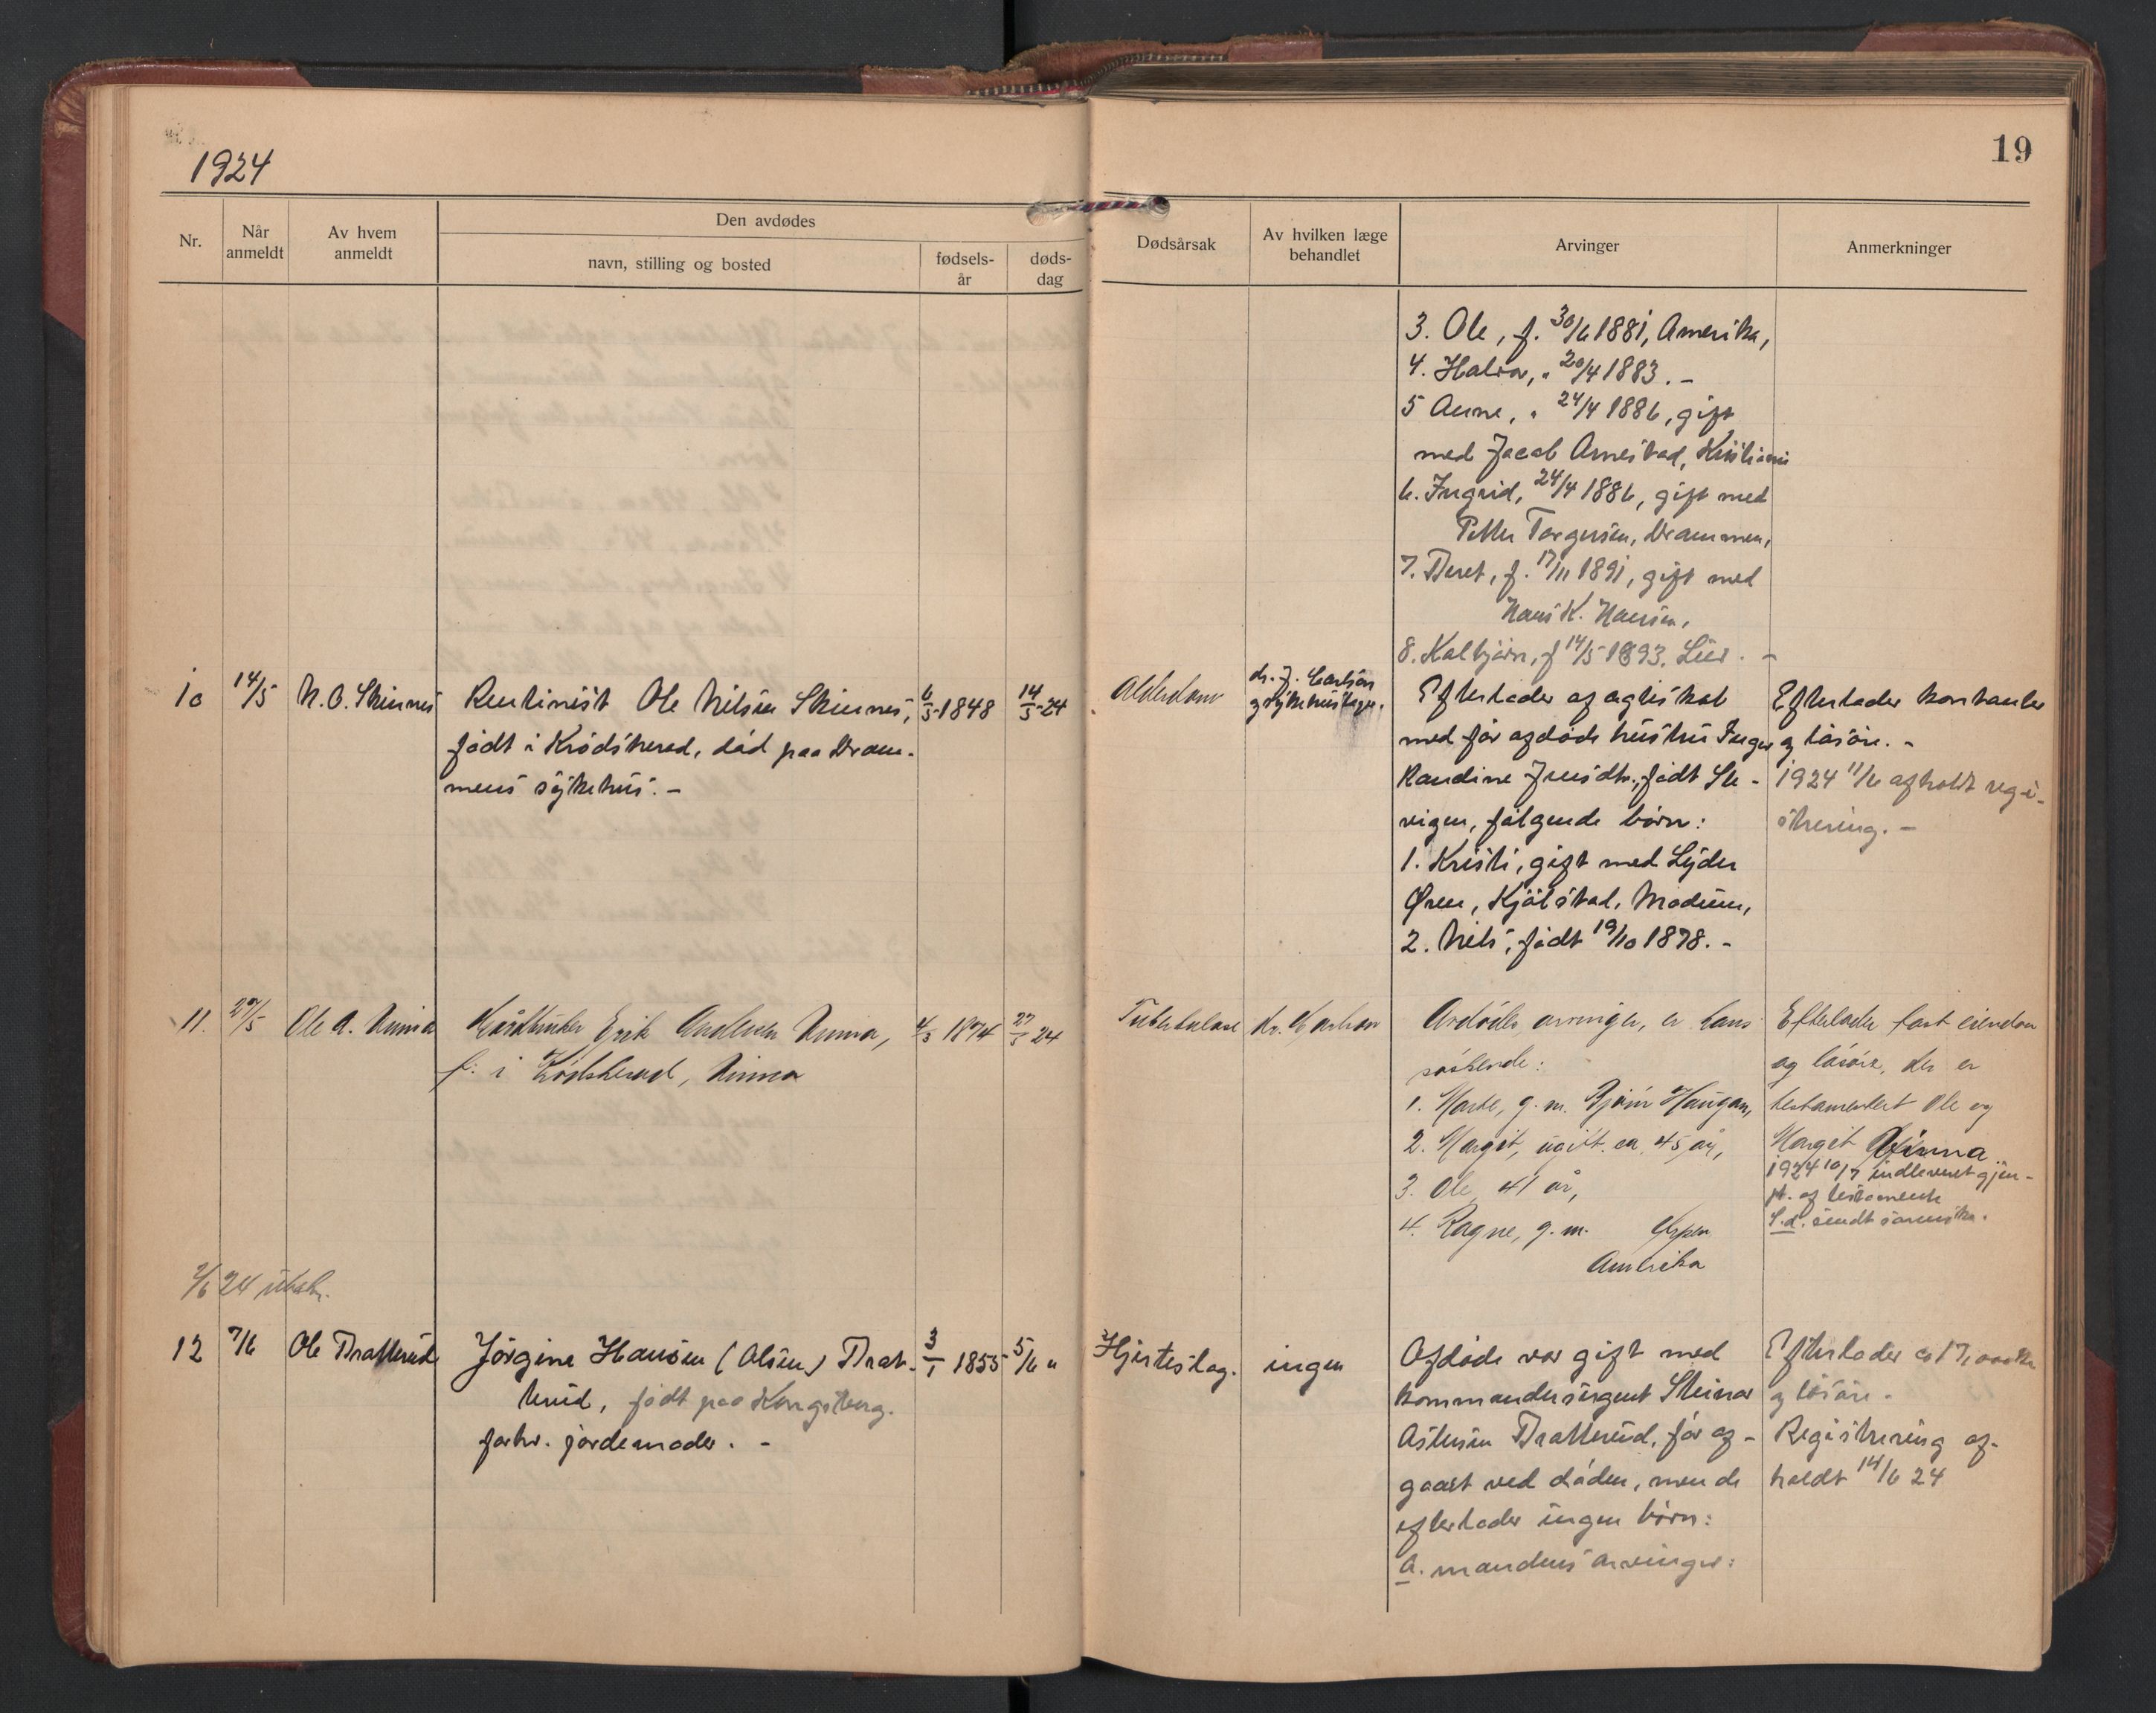 1924
19
Nr.
Når anmeldt
Av hvem anmeldt
Den avdødes
navn, stilling og bosted
fødsels-
år
døds-
dag
Dødsårsak
Av hvilken læge
behandlet
Arvinger
Anmerkninger
3. Ole, f. 30/6 1881, Amerika,
4. Halvor, " 20/4 1883. -
5 Anne, " 24/4 1886, gift
med Jacob Arnestad, Kristiania
6. Ingrid, 24/4 1886, gift med
Petter Torgersen, Drammen,
7. Beret, f. 17/11 1891, gift med
Hans K. Hansen,
8. Kolbjørn, f 14/5 1893, Lier. -
10
14/5
N. O. Skinnes
Rentinist Ole Nilsen Skinnes,
født i Krødsherad, död paa Dram-
mens sykehus. -
6/5 1848
14/5 24
Alderdom
dr. J. Carlson
og sykehuslægen.
Efterlader af ægteskab
med før afdøde hustru Inger
Randine Jensdtr., født Ste-
vigen, følgende børn:
1. Kristi, gift med Lyder
Øren, Kjølstad, Modum,
2. Nils, født 19/10 1878. -
Efterlader kontanter
og løsøre. -
1924 11/6 afholdt regi-
strering. -
11.
27/5
Ole A. Ninna
Gårdbruker Erik Andersen Ninna,
f. i Krødsherad, Ninna
4/3 1874
27/5 24
Tuberkulose
dr. Carlson
Avdødes arvinger, er hans
søskende:
1. Marte, g. m. Bjørn Haugan,
2. Margit, ugift. ca 45 år,
3. Ole 41 år,
4. Ragne, g. m. Espen
Amerika
Efterlader fast eiendom
og løsøre, der er
testamentert Ole og
Margit Ninna
1924 10/7 indleveret gjen-
pt. af testamente
S.d. sendt samme tilb.
2/6 24
12
7/6
Ole Bratterud
Jørgine Hansen (Olsen) Brat-
terud, født paa Kongsberg.
forhv. jordemoder. -
3/1 1855
5/6 "
Hjerteslag.
ingen
Afdøde var gift med
kommandersergent Steinar
Astesen Bratterud, før af-
gaaet ved døden, men de
efterlader ingen børn:
a. mandens arvinger:
Efterlader ca 17,000 kr
og løsøre.
Registrering af-
holdt 14/6 24